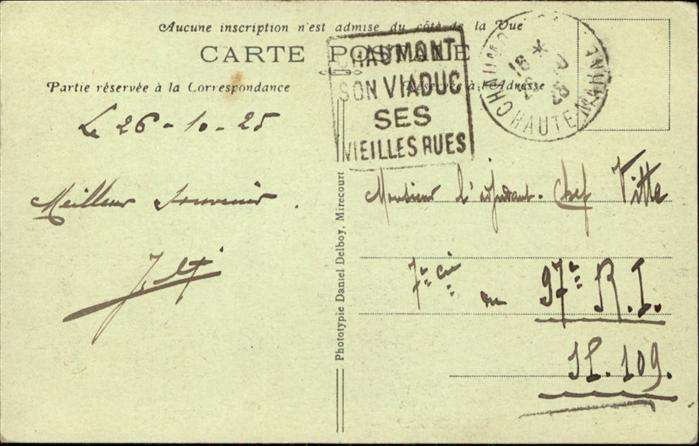 Aucune inscription n'est admise du côté de la Vue
CARTE POSTALE
Partie réservée à la Correspondance
à l'Adresse
CHAUMONT
SON VIADUC
SES
VIEILLES RUES
CHAUM
HAUTE MARNE
Le 26-10-25
Meilleur Souvenir.
Monsieur L'adjudant-Chef Vitte
7e Cie
au 97e R.I.
SP. 109.
Phototypie Daniel Delboy, Mirecourt